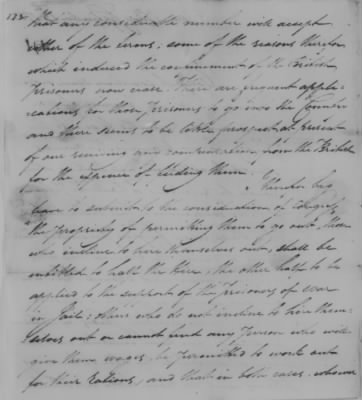 132
that any considerable number will accept
either of the terms; some of the reasons therefore
which induced the confinement of the British
Prisoners now cease. There are frequent appli-
cations for those Prisoners to go into the Country
and there seems to be little prospect at present
of our receiving any compensation from the British
for the expence of feeding them.
I therefore beg
leave to submit to the consideration of Congress
the propriety of permitting them to go out, those
who incline to hire themselves out, shall be
entitled to half the hire, the other half to be
applied to the support of the Prisoners of War
in Jail; others who do not incline to hire them-
selves out or cannot find any Person who will
give them wages, be permitted to work out
for their Rations, and that in both cases whoever